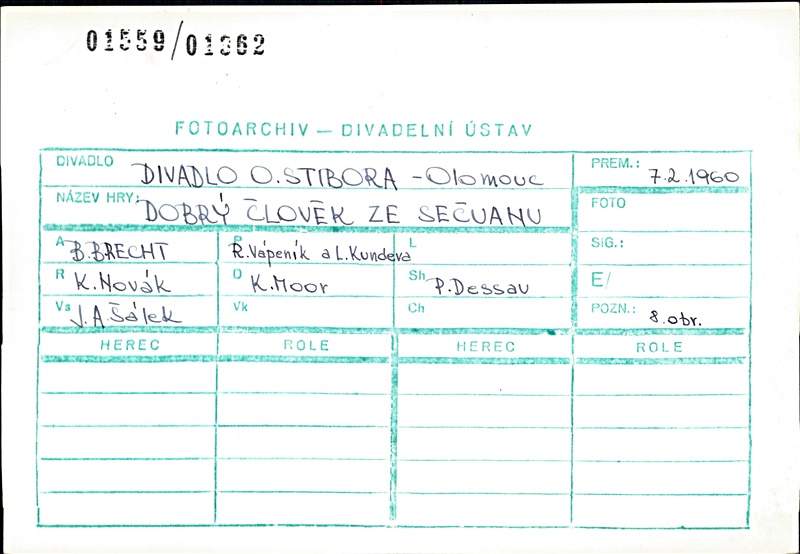 01559/01362
FOTOARCHIV – DIVADELNÍ ÚSTAV
DIVADLO DIVADLO O. STIBORA - Olomouc PREM.: 7.2.1960
NÁZEV HRY: DOBRÝ ČLOVĚK ZE SEČUANU FOTO
A B. BRECHT P R. Vápeník a L. Kundeva L SIG.:
R K. Novák D K. Moor Sh P. Dessau E/
Vs J. A. Šálek Vk Ch POZN.: 8. obr.
HEREC ROLE HEREC ROLE